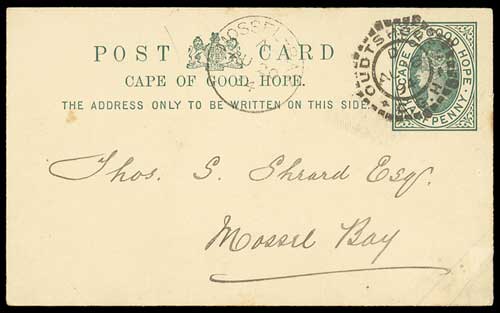 POST CARD
CAPE OF GOOD HOPE.
THE ADDRESS ONLY TO BE WRITTEN ON THIS SIDE.
MOSSEL
OUDTSH
CAPE OF GOOD HOPE
HALFPENNY
Thos. S. Shrard Esq.
Mossel Bay